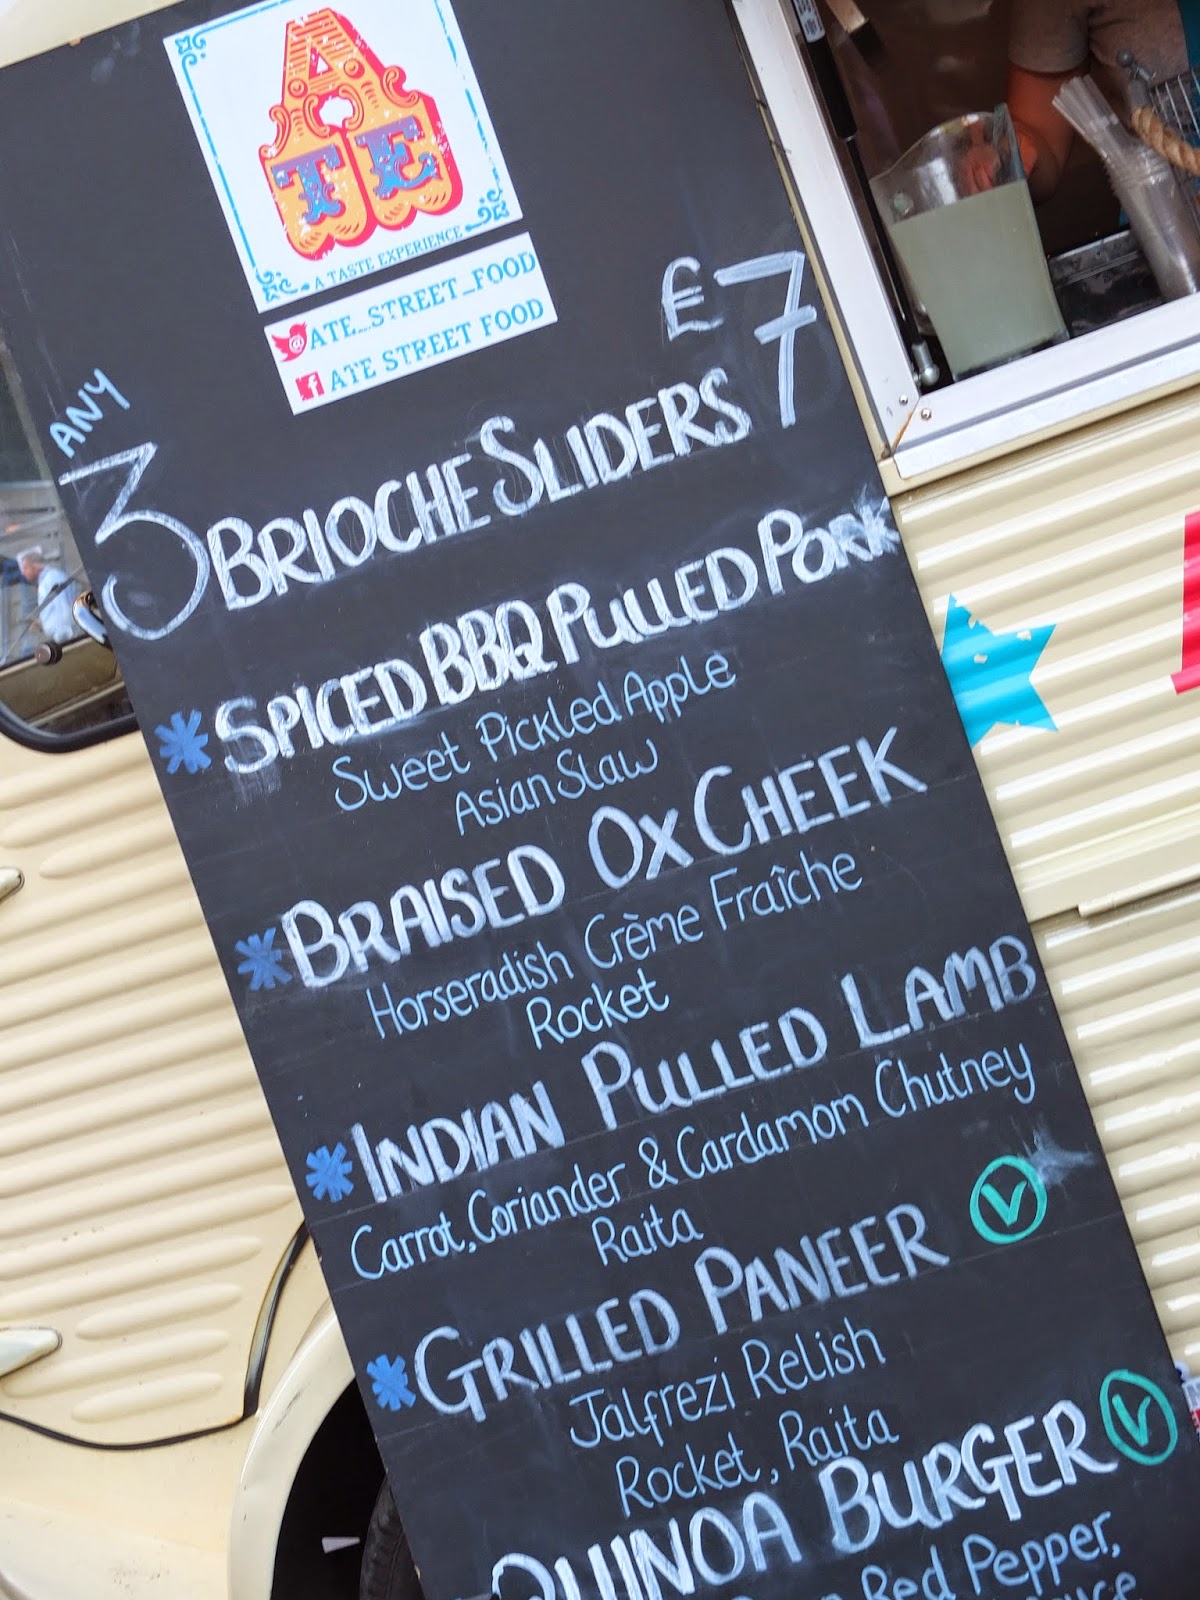 ATE
A TASTE EXPERIENCE
@ATE_STREET_FOOD
f ATE STREET FOOD
£7
ANY
3 BRIOCHE SLIDERS
SPICED BBQ PULLED PORK
Sweet Pickled Apple
Asian Slaw
BRAISED OX CHEEK
Horseradish Crème Fraîche
Rocket
INDIAN PULLED LAMB
Carrot, Coriander & Cardamom Chutney
Raita
GRILLED PANEER V
Jalfrezi Relish
Rocket, Raita
QUINOA BURGER V
Red Pepper,